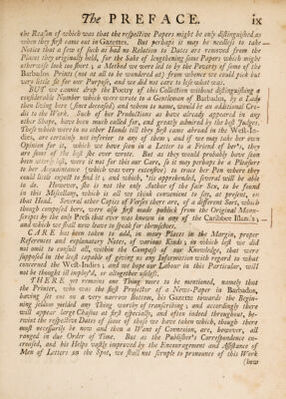 The PREFACE. ix
the Reason of which was that the respective Papers might be only distinguished as
when they first came out in Gazettes. But perhaps it may be needless to take
Notice that a few of such as had no Relation to Dates are removed from the
Places they originally held, for the Sake of lengthening some Papers which might
otherwise look too short; a Method we were led to by the Poverty of some of the
Barbados Prints (not at all to be wondered at) from whence we could pick but
very little fit for our Purpose, and we did not care to lose what was.
BUT we cannot drop the Poetry of this Collection without distinguishing a
considerable Number which were wrote to a Gentleman of Barbados, by a Lady
then living here (since deceased) and whom to name, would be an additional Cre-
dit to the Work. Such of her Productions as have already appeared in any
other Shape, have been much called for, and greatly admired by the best Judges.
Those which were in no other Hands till they first came abroad in the West-In-
dies, are certainly not inferior to any of them; and if we may take her own
Opinion for it, which we have seen in a Letter to a Friend of her's, they
are some of the best she ever wrote. But as they would probably have soon
been utterly lost, were it not for this our Care, so it may perhaps be a Pleasure
to her Acquaintance (which was very extensive) to trace her Pen where they
could little expect to find it; and which, 'tis apprehended, several will be able
to do. However, she is not the only Author of the fair Sex, to be found
in this Miscellany, which is all we think convenient to say, at present, on
that Head. Several other Copies of Verses there are, of a different Sort, which
though composed here, were also first made publick from the Original Manu-
scripts by the only Press that ever was known in any of the Caribbee Islands;
and which we shall now leave to speak for themselves.
CARE has been taken to add, in many Places in the Margin, proper
References and explanatory Notes, of various Kinds; in which last we did
not omit to consult all, within the Compass of our Knowledge, that were
supposed in the least capable of giving us any Information with regard to what
concerned the West-Indies; and we hope our Labour in this Particular, will
not be thought ill imploy'd, or altogether useless.
THERE yet remains one Thing more to be mentioned, namely that
the Printer, who was the first Projector of a News-Paper in Barbados,
having set out on a very narrow Bottom, his Gazette towards the Begin-
ning seldom yielded any Thing worth transcribing; and accordingly there
will appear large Chasms at first especially, and often indeed throughout, be-
twixt the respective Dates of some of those we have taken which, though there
must necessarily be now and then a Want of Connexion, are, however, all
ranged in due Order of Time. But as the Publisher's Correspondence en-
creased, and his Helps vastly improved by the Encouragement and Assistance of
Men of Letters on the Spot, we shall not scruple to pronounce of this Work
(how